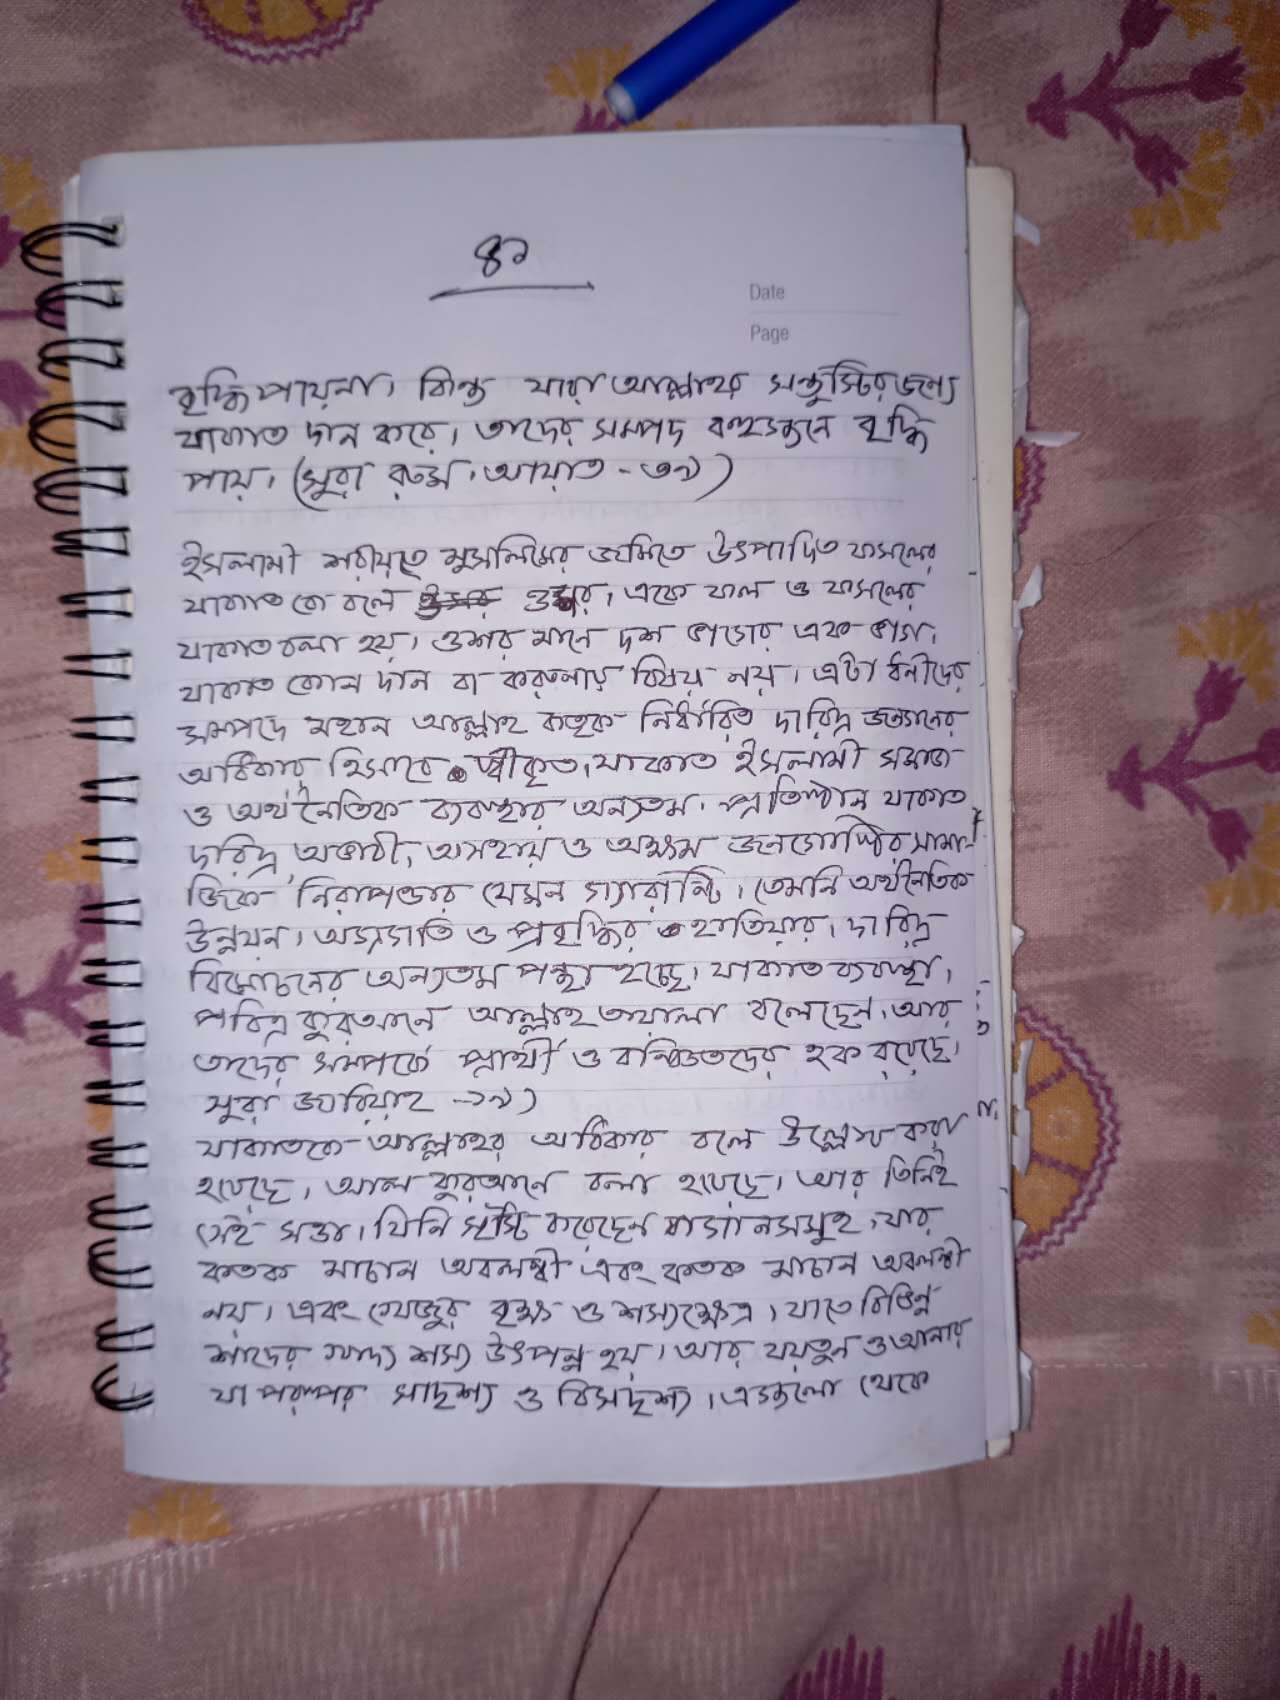 ৪১
Date
Page
বৃদ্ধি পায়না। কিন্তু যারা আল্লাহর সন্তুস্টির জন্যে
যাকাত দান করে, তাদের সম্পদ বহুগুনে বৃদ্ধি
পায়। (সুরা রুম, আয়াত - ৩৯)
ইসলামী শরীয়তে মুসলিমের জমিতে উৎপাদিত ফসলের
যাকাত কে বলে ওশর, একে ফল ও ফসলের
যাকাত বলা হয়, ওশর মানে দশ ভাগের এক ভাগ,
যাকাত কোন দান বা করুনার বিষয় নয়, এটা ধনীদের
সম্পদে মহান আল্লাহ কতৃক নির্ধারিত দারিদ্র জনগনের
অধিকার হিসাবে স্বীকৃত, যাকাত ইসলামী সমাজ
ও অর্থনৈতিক ব্যবস্থার অন্যতম, প্রতিষ্ঠান যাকাত
দরিদ্র, অভাবী, অসহায় ও অক্ষম জনগোষ্ঠির সামা-
জিক নিরাপত্তার যেমন গ্যারান্টি, তেমনি অর্থনৈতিক
উন্নয়ন, অগ্রগতি ও প্রবৃদ্ধির হাতিয়ার, দারিদ্র
বিমোচনের অন্যতম পন্থা হচ্ছে, যাকাত ব্যবস্থা,
পবিত্র কুরআনে আল্লাহ তায়ালা বলেছেন, আর
তাদের সম্পর্কে প্রার্থী ও বঞ্চিতদের হক রয়েছে,
সুরা জারিয়াহ -১৯)
যাকাতকে আল্লাহর অধিকার বলে উল্লেখ করা
হয়েছে, আল কুরআনে বলা হয়েছে, আর তিনিই
সেই সত্তা, যিনি সৃস্টি করেছেন বাগানসমুহ, যার
কতক মাচান অবলম্বী এবং কতক মাচান অবলম্বী
নয়, এবং খেজুর বৃক্ষ ও শস্যক্ষেত্র, যাতে বিভিন্ন
স্বাদের খাদ্য শস্য উৎপন্ন হয়, আর যয়তুন ও আনার
যা পরস্পর সাদৃশ্য ও বিসদৃশ্য, এগুলো থেকে